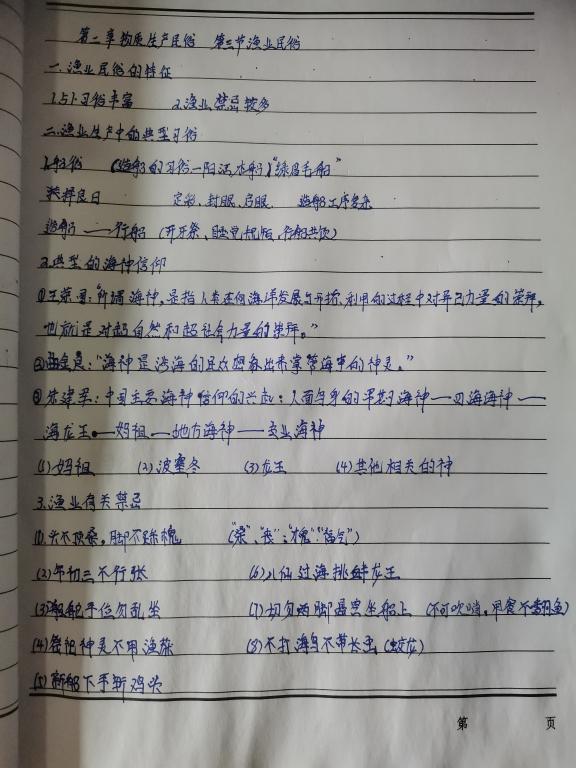 第二章物质生产民俗 第三节渔业民俗
一.渔业民俗的特征
1.与习俗丰富 2.渔业禁忌较多
二.渔业生产中的典型习俗
1.船俗 (造船的习俗—阳活,木船) "绿眉毛船"
选择良日 定彩、封眼、启眼. 造船工序复杂
造船——行船 (开开祭、规矩,行船共饮)
2.典型的海神信仰
①王荣国:"所谓海神,是指人类在向海洋发展与开拓、利用的过程中对异己力量的崇拜,
也就是对超自然和超社会力量的崇拜。"
②曲金良:"海神是沿海的民众想象出来掌管海事的神灵。"
③朱建君:中国主要海神信仰的兴起:人面鸟身的早期海神——四海海神——
海龙王——妈祖——地方海神——专业海神
(1)妈祖 (2)波塞冬 (3)龙王 (4)其他相关的神
3.渔业有关禁忌
(1).头不顶桑,脚不踩槐 ("桑"、"丧";"槐""福气")
(2)年初三不行张 (6)八仙过海排龙王
(3)船舵手位勿乱坐 (7)切勿两脚悬空坐船上 (不可吹哨,用餐不翻鱼)
(4)祭祀神灵不用渔旅 (8)不打海鸟不带长虫(蛟龙)
(5)新船下手斩鸡头
第 页